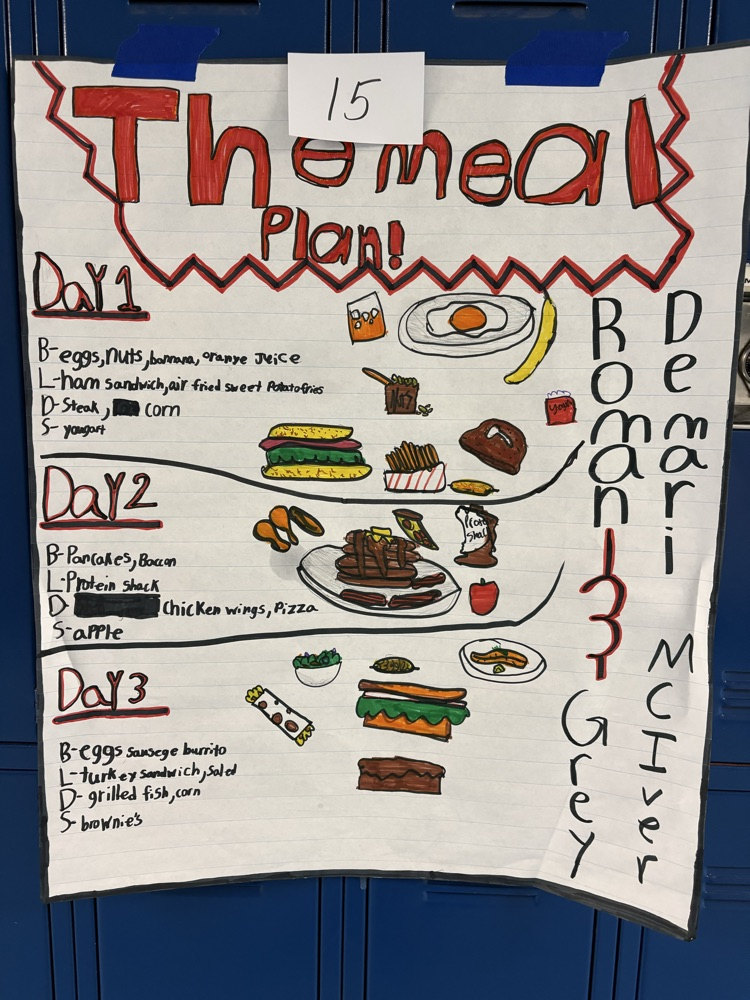 15
The meal
Plan!
Day 1
B-eggs, nuts, bannana, oranye Jeice
L-ham sandwich, air fried sweet Potatofries
D-Steak, corn
S- yougart
Nuts
Yogurt
Day 2
B-Pancakes, Bacon
L-Protein shack
D- Chicken wings, Pizza
S-apple
Protein
Shack
Day 3
B-eggs sausege burrito
L-turkey sandwich, Salad
D-grilled fish, corn
S-brownie's
Roman
&
Grey
Demari
McIver